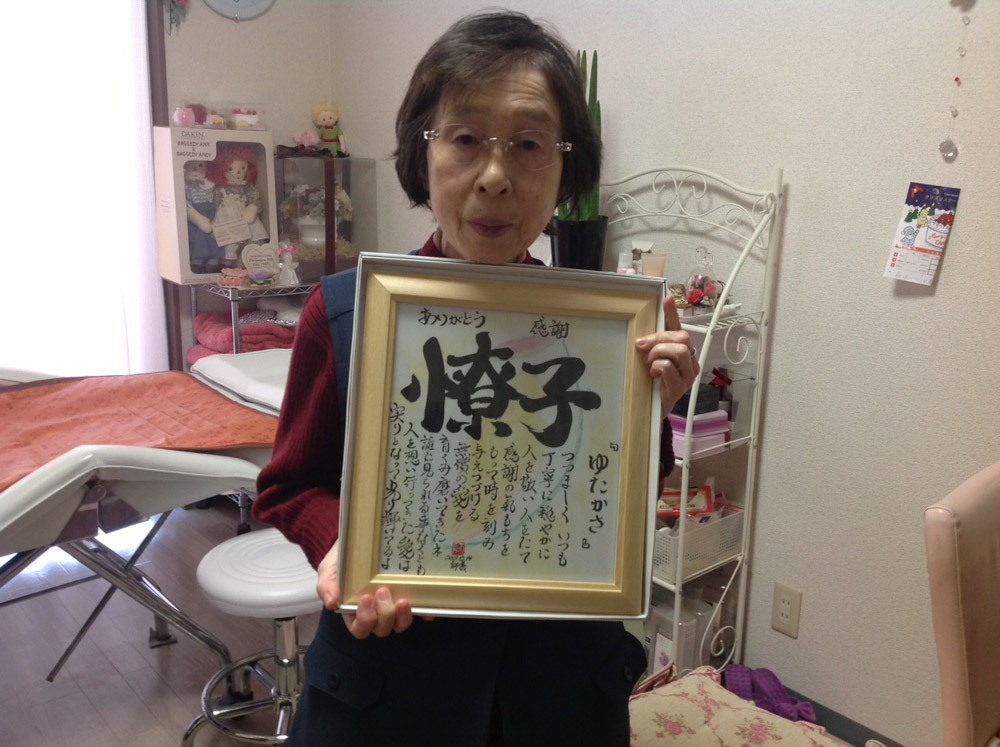 ありがとう
感謝
憭子
『ゆたかさ』
つつましく いつも
丁寧に穏やかに
人を敬い人をたて
感謝の氣もちを
もって時を刻み
与えつづける
無償の愛を
育くみ磨いてきたネ
誰に見られる事なくとも
人を想い行ってきた愛は
実りとなってあり輝いてるよ
DAKIN
RAGGEDY ANN
&
RAGGEDY ANDY